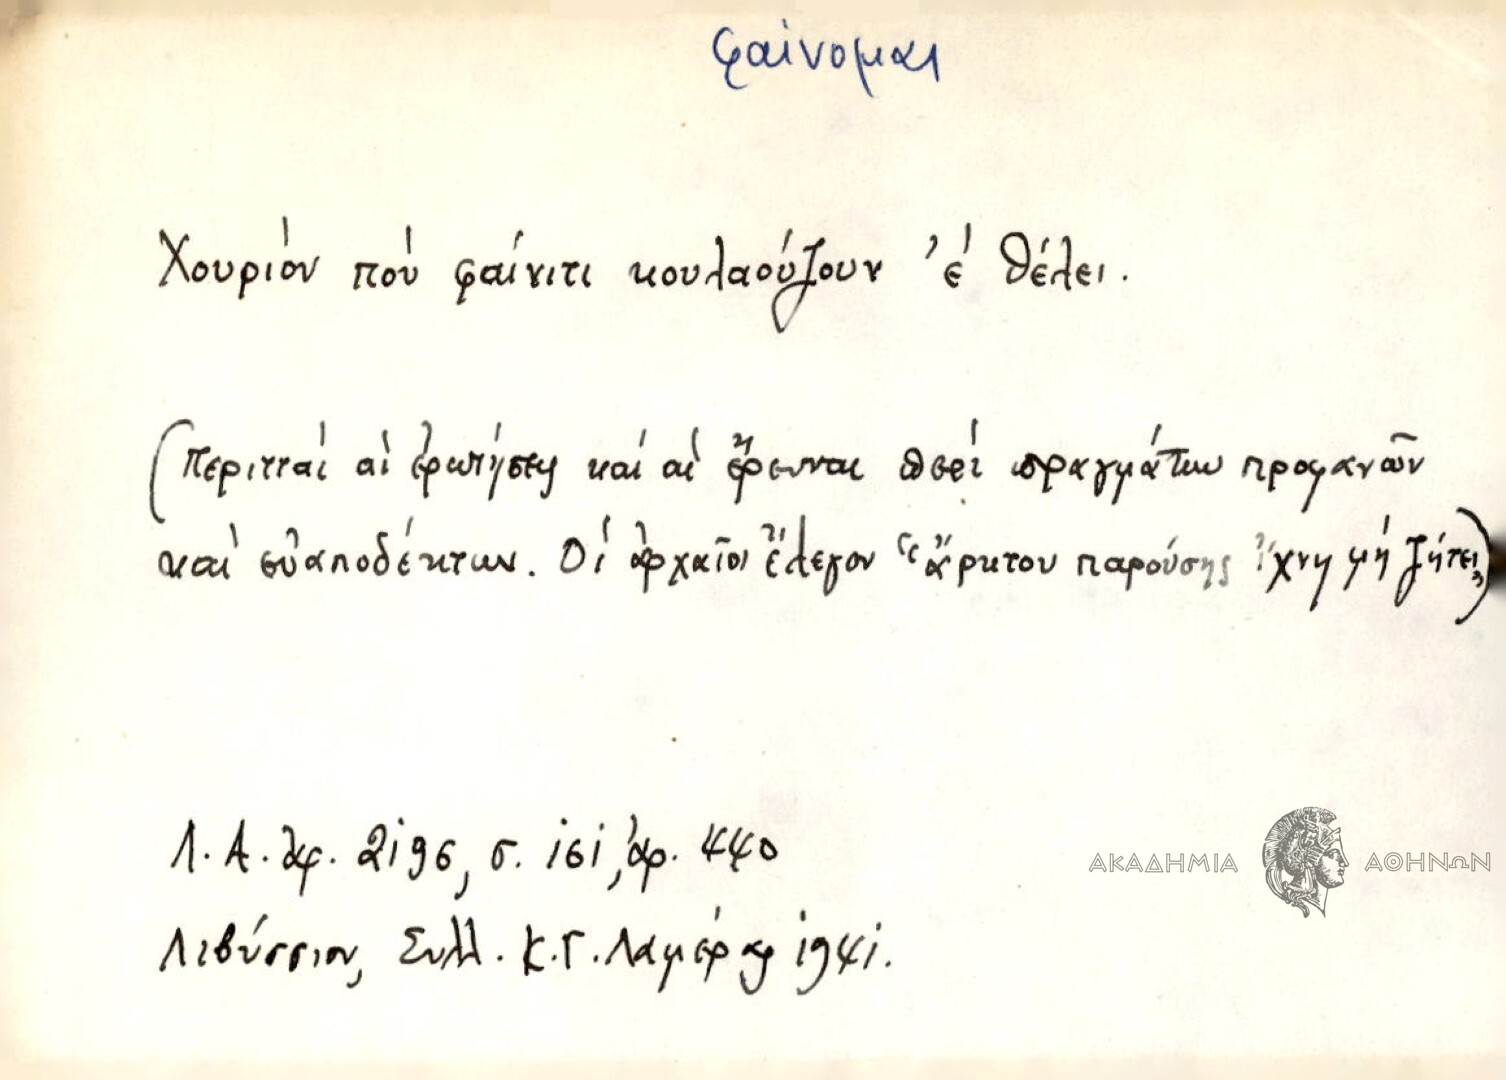 φαίνομαι
Χουριὸν ποὺ φαίνιτι κουλαούζουν 'ὲ θέλει.
(Περιτταὶ αἱ ἐρωτήσεις καὶ αἱ ἔρευναι περὶ πραγμάτων προφανῶν
καὶ εὐαποδέκτων. Οἱ ἀρχαῖοι ἔλεγον "ἄρκτου παρούσης ἴχνη μὴ ζήτει")
Λ.Α. ἀρ. 2195, σ. 151, ἀρ. 440
Λιβύσσιον, Συλλ. Κ.Γ. Λαμέρας 1941.
ΑΚΑΔΗΜΙΑ ΑΘΗΝΩΝ